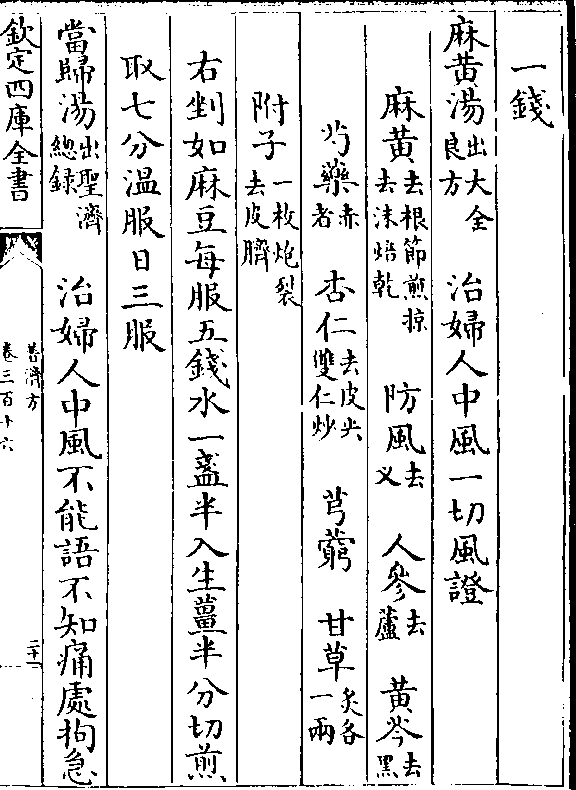 一錢
麻黄湯出大全良方 治婦人中風一切風證
麻黄去根節煎掠去沫焙乾 防風去义 人參去蘆 黄芩去黑
芍藥赤者 杏仁去皮尖雙仁炒 芎藭 甘草炙各一兩
附子一枚炮裂去皮臍
右剉如麻豆每服五錢水一盞半入生薑半分切煎
取七分温服日三服
當歸湯出聖濟總録 治婦人中風不能語不知痛處拘急
欽定四庫全書
普濟方
卷三百十六
二十